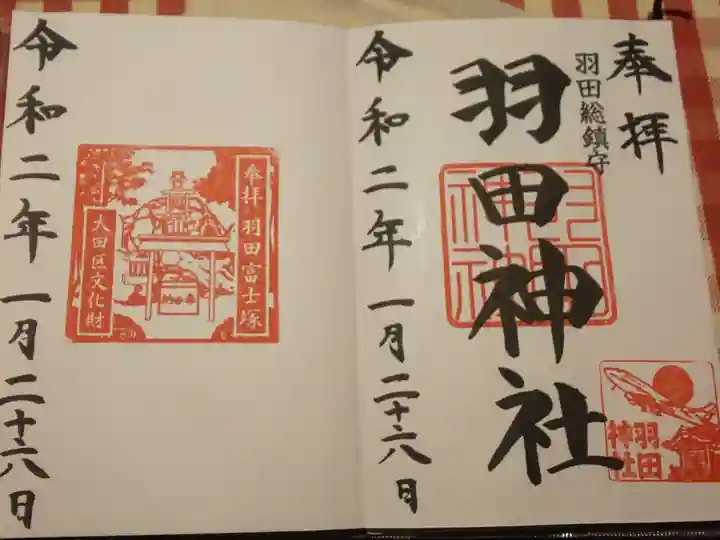 奉拝
羽田総鎮守
羽田神社
羽田神社
令和二年一月二十六日
奉拝 羽田富士塚
大田区文化財
奉納
令和二年一月二十六日